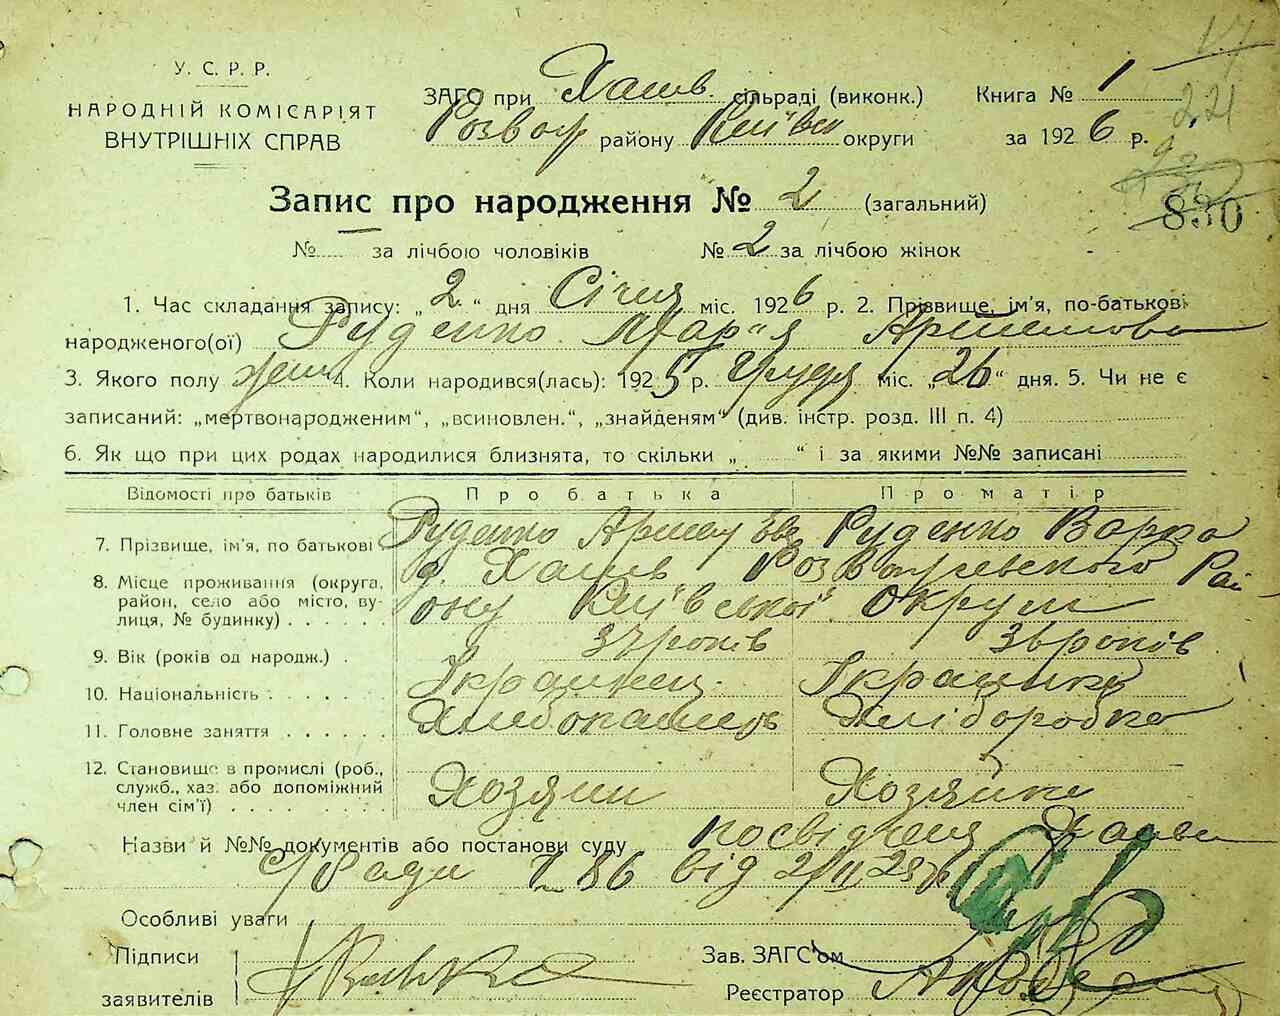 У. С. Р. Р.
НАРОДНІЙ КОМІСАРІЯТ
ВНУТРІШНІХ СПРАВ
ЗАГС при Хатв. сільраді (виконк.)
Розваж району Київськ округи
Книга № 1
за 1926 р.
17
221
830
Запис про народження № 2 (загальний)
№ за лічбою чоловіків № 2 за лічбою жінок
1. Час складання запису: „2“ дня Січня міс. 1926 р. 2. Прізвище, ім'я, по-батькові
народженого(ої) Руденко Мар'я Артемова
3. Якого полу жен 4. Коли народився(лась): 1925 р. Грудр міс. „26“ дня. 5. Чи не є
записаний: „мертвонародженим“, „всиновлен.“, „знайденям“ (див. інстр. розд. III п. 4)
6. Як що при цих родах народилися близнята, то скільки „ “ і за якими №№ записані
Відомості про батьків Про батька Про матір
7. Прізвище, ім'я, по батькові Руденко Артем Руденко Варка
8. Місце проживання (округа, район, село або місто, вулиця, № будинку) Розважевського Рай
ону Київської Округи
9. Вік (років од народж.) років років
10. Національність Українец Українка
11. Головне заняття Хліборобка
12. Становище в промислі (роб., служб., хаз. або допоміжний член сім'ї) Хозяин Хозяйка
Назви й №№ документів або постанови суду посвідченя
С/Ради № 86 від
Особливі уваги
Підписи
заявителів
Зав. ЗАГС'ом
Реєстратор